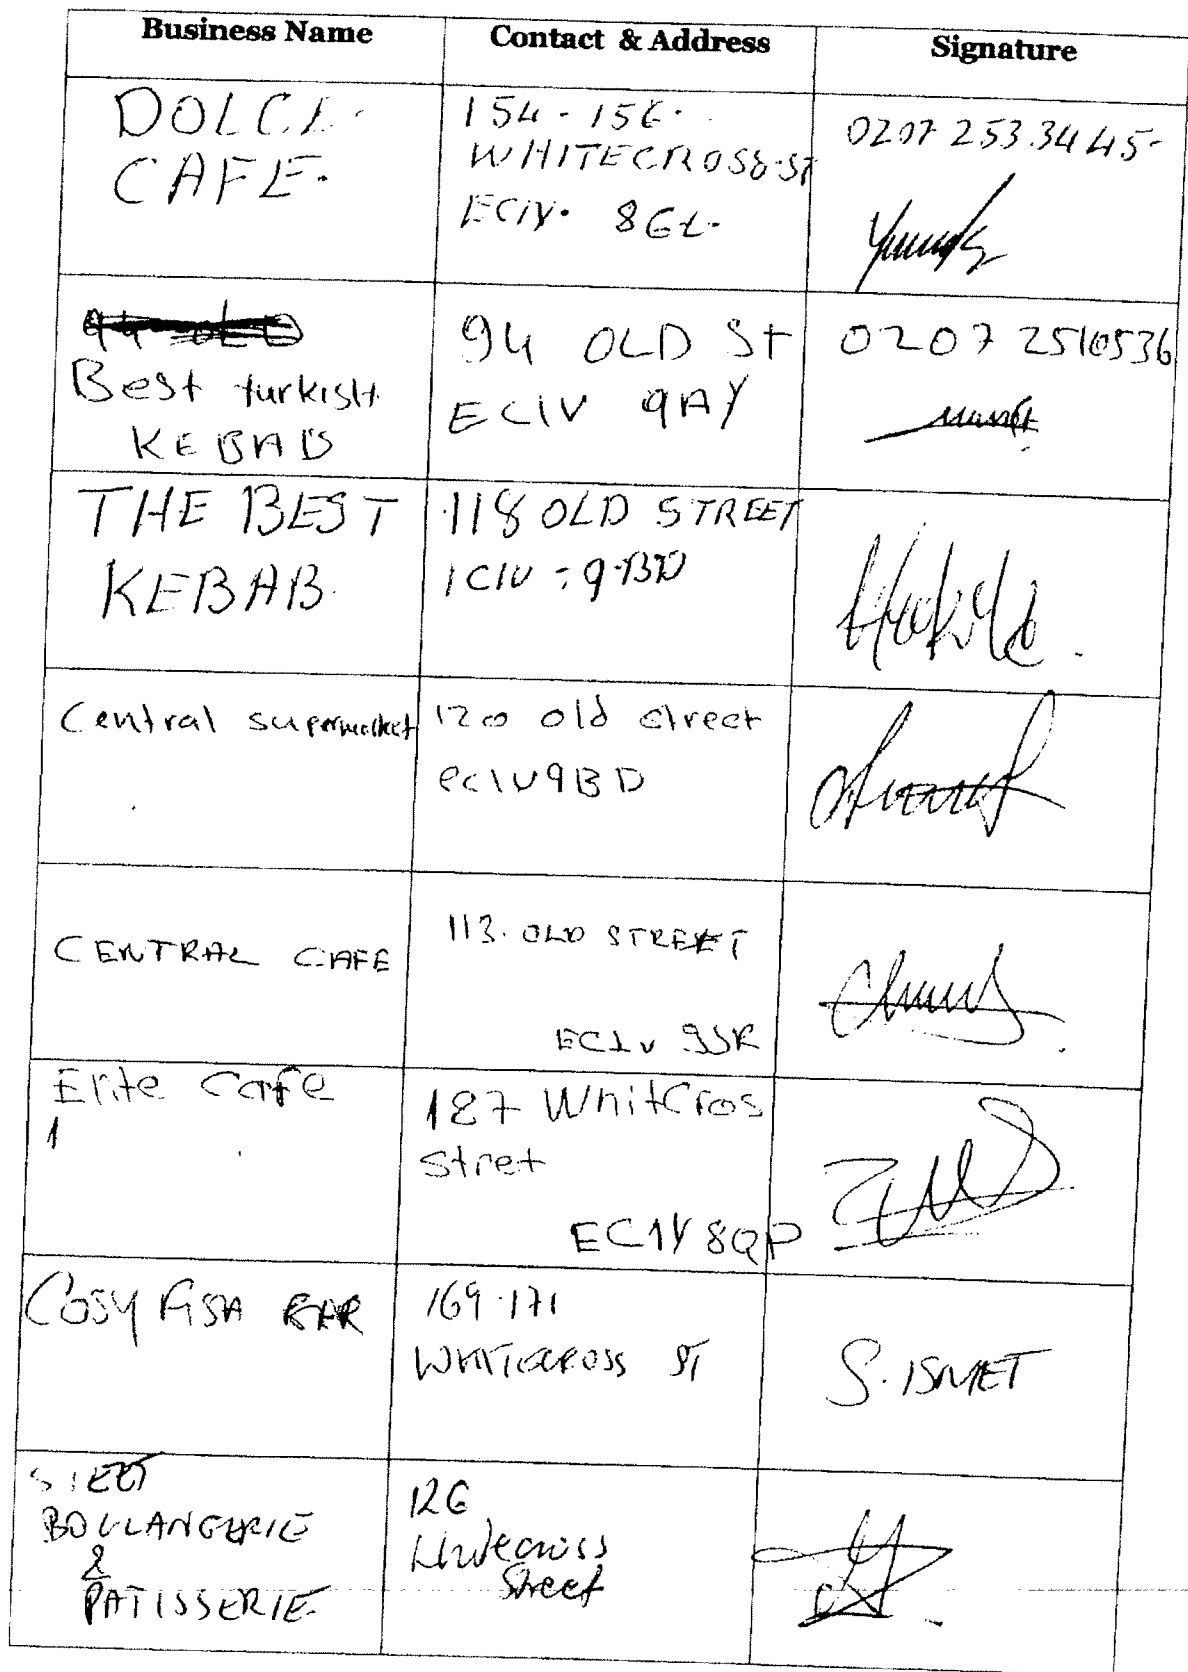 Business Name
Contact & Address
Signature
DOLCE
CAFE.
154 - 156.
WHITECROSS ST
EC1Y. 8GL.
0207 253 34 45-
Best turkish
KEBAB
94 OLD St
EC1V 9AY
0207 2510536
THE BEST
KEBAB.
118 OLD STREET
1C1V - 9BD
Central supermarket
120 old street
ec1v9BD
CENTRAL CAFE
113. OLD STREET
EC1V 9JR
Elite Cafe
1
187 WhitCros
Stret
EC1Y 8QP
COSY FISH BAR
169-171
WHITECROSS ST
S. ISMET
BOULANGERIE
&
PATISSERIE
126
Whitecross
Street